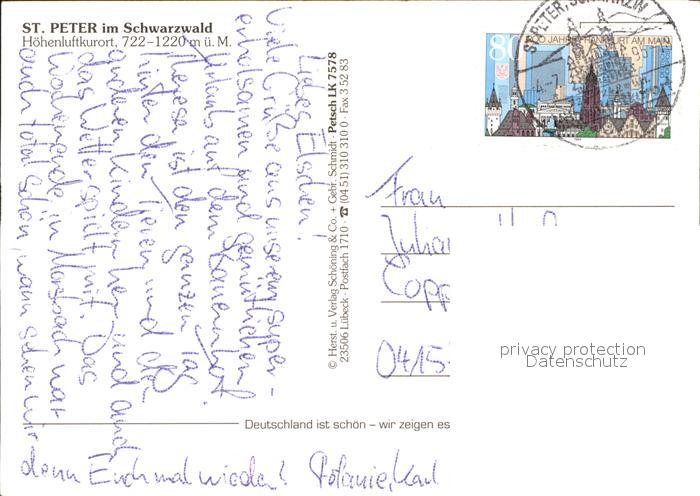 ST. PETER im Schwarzwald
Höhenluftkurort, 722–1220 m ü. M.
80
JAHRE FRANKFURT AM MAIN
ST. PETER, SCHWARZW
Liebes Elschen!
Viele Grüße aus unserem super-
erholsamen und gemütlichen
Urlaub auf dem
Theresa ist den ganzen Tag
hinter den Tieren und den
anderen Kindern her und
das Wetter spielt mit. Das
Wochenende in Morsbach war
auch total schön, wann sehen wir
denn Euch mal wieder?
© Herst. u. Verlag Schöning & Co. + Gebr. Schmidt · Petsch LK 7578
23506 Lübeck · Postfach 1710 · ☎ (04 51) 310 310 0 · Fax 3 52 83
Frau
Julia
Copp
0415
privacy protection
Datenschutz
Deutschland ist schön – wir zeigen es